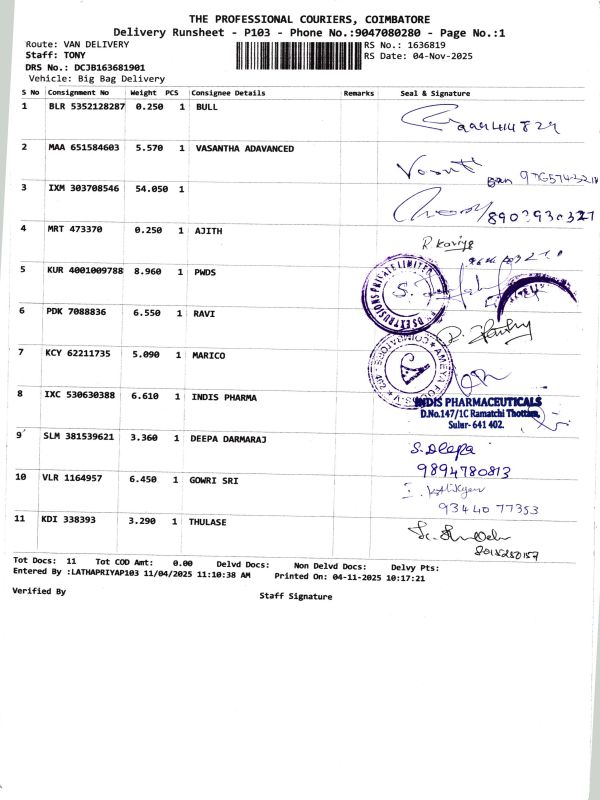 THE PROFESSIONAL COURIERS, COIMBATORE
Delivery Runsheet - P103 - Phone No.:9047080280 - Page No.:1
Route: VAN DELIVERY RS No.: 1636819
Staff: TONY RS Date: 04-Nov-2025
DRS No.: DCJB163681901
Vehicle: Big Bag Delivery
S No Consignment No Weight PCS Consignee Details Remarks Seal & Signature
1 BLR 5352128287 0.250 1 BULL
2 MAA 651584603 5.570 1 VASANTHA ADAVANCED
3 IXM 303708546 54.050 1
4 MRT 473370 0.250 1 AJITH
R. Kaviya
5 KUR 4001009788 8.960 1 PWDS
6 PDK 7088836 6.550 1 RAVI
7 KCY 62211735 5.090 1 MARICO
8 IXC 530630388 6.610 1 INDIS PHARMA
INDIS PHARMACEUTICALS
D.No.147/1C Ramatchi Thottam,
Sulur- 641 402.
9 SLM 381539621 3.360 1 DEEPA DARMARAJ
S. Deepa
9894780813
10 VLR 1164957 6.450 1 GOWRI SRI
93440 77353
11 KDI 338393 3.290 1 THULASE
Tot Docs: 11 Tot COD Amt: 0.00 Delvd Docs: Non Delvd Docs: Delvy Pts:
Entered By :LATHAPRIYAP103 11/04/2025 11:10:38 AM Printed On: 04-11-2025 10:17:21
Verified By
Staff Signature